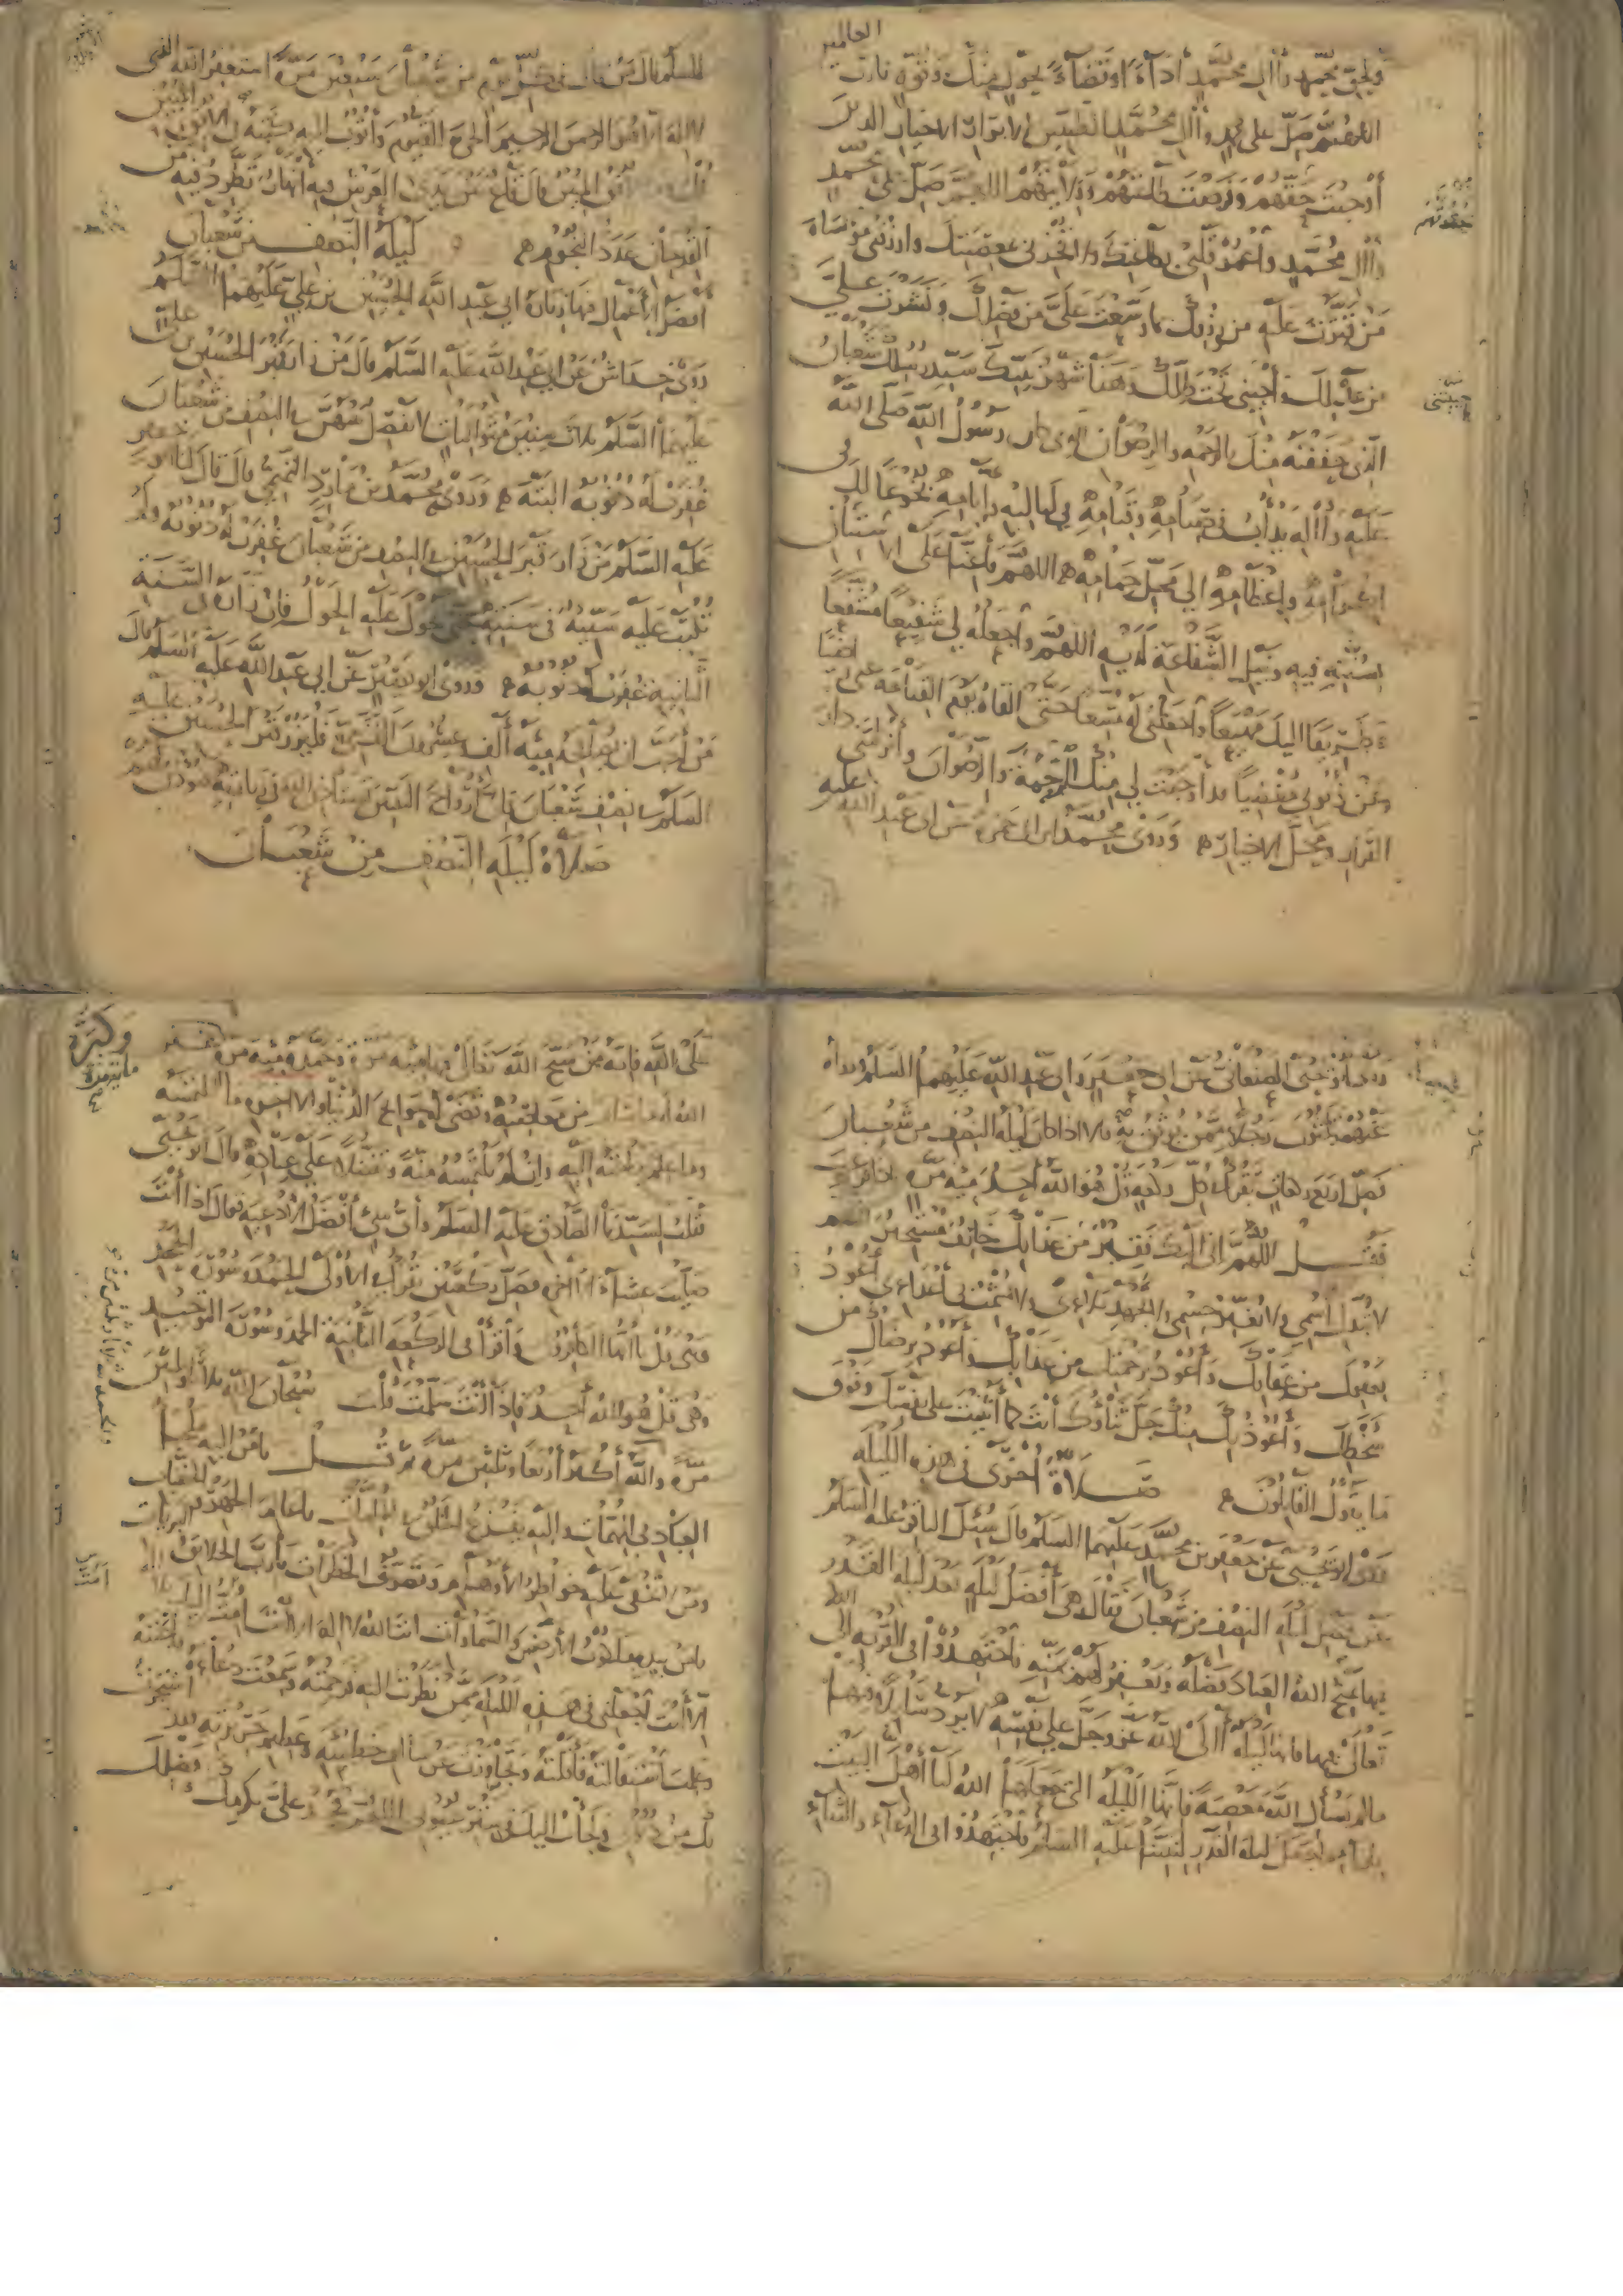 العالمين
وبحق محمد وآل محمد أداء وقضاء بحول منك وقوة يا رب
اللهم صل على محمد وآل محمد الطيبين الأبرار الأخيار الذين
أوجبت حقوقهم وفرضت طاعتهم وولايتهم اللهم صل على محمد
وآل محمد واعمر قلبي بطاعتك ولا تخزني بمعصيتك وارزقني مواساة
من قترت عليه من رزقك بما وسعت علي من فضلك ونشرت علي
من عدلك وأحييتني تحت ظلك وهذا شهر نبيك سيد رسلك شعبان
الذي حففته منك بالرحمة والرضوان الذي كان رسول الله صلى الله
عليه وآله يدأب في صيامه وقيامه في لياليه وأيامه بخوعا لك في
إكرامه وإعظامه إلى محل حمامه اللهم فأعنا على الاستنان
بسنته فيه ونيل الشفاعة لديه اللهم واجعله لي شفيعا مشفعا
وطريقا إليك مهيعا واجعلني له متبعا حتى ألقاه يوم القيامة عني راضيا
وعن ذنوبي مغضيا قد أوجبت لي منك الرحمة والرضوان وأنزلتني دار
القرار ومحل الأخيار وروى محمد بن أبي حمزة عن أبي عبد الله عليه
حقوقهم
السلم قال من قال في كل يوم من شعبان سبعين مرة أستغفر الله الذي
لا إله إلا هو الرحمن الرحيم الحي القيوم وأتوب إليه كتبه في الأفق المبين
قلت وما الأفق المبين قال قاع بين يدي العرش فيه أنهار تطرد فيه من
القدحان عدد النجوم ليلة النصف من شعبان
أفضل الأعمال فيها زيارة أبي عبد الله الحسين بن علي عليهما السلم
روى خداش عن أبي عبد الله عليه السلم قال من زار قبر الحسين بن علي
عليهما السلم ثلاث سنين متواليات لا يفصل بينهن في النصف من شعبان
غفرت له ذنوبه البتة وروى محمد بن مارد التميمي قال قال لنا أبو جعفر
عليه السلم من زار قبر الحسين في النصف من شعبان غفرت له ذنوبه ولم
تكتب عليه سيئة في سنته حتى يحول عليه الحول فإن زاره في السنة
الثانية غفرت له ذنوبه وروى أبو بصير عن أبي عبد الله عليه السلم قال
من أحب أن يصافحه مئة ألف وعشرون ألف نبي فليزر قبر الحسين بن علي عليه
السلم في نصف شعبان فإن أرواح النبيين يستأذن الله في زيارته فيؤذن لهم
صلاة ليلة النصف من شعبان
روى أبو يحيى الصنعاني عن أبي جعفر وأبي عبد الله عليهما السلم ورواه
عنهما ثلثون رجلا ممن يوثق به قالا إذا كان ليلة النصف من شعبان
فصل أربع ركعات تقرأ في كل ركعة قل هو الله أحد مئة مرة فإذا فرغت
فقل اللهم إني إليك فقير ومن عذابك خائف مستجير اللهم
لا تبدل اسمي ولا تغير جسمي ولا تجهد بلائي ولا تشمت بي أعدائي أعوذ
بعفوك من عقابك وأعوذ برحمتك من عذابك وأعوذ برضاك من
سخطك وأعوذ بك منك جل ثناؤك أنت كما أثنيت على نفسك وفوق
ما يقول القائلون صلاة أخرى في هذه الليلة
روى أبو يحيى عن جعفر بن محمد عليهما السلم قال سئل الباقر عليه السلم
عن فضل ليلة النصف من شعبان فقال هي أفضل ليلة بعد ليلة القدر
فيها يمنح الله العباد فضله ويغفر لهم بمنه فاجتهدوا في القربة إلى الله
تعالى فيها فإنها ليلة آلى الله عز وجل على نفسه لا يرد سائلا فيها
ما لم يسأل الله معصية فإنها الليلة التي جعلها الله لنا أهل البيت
بإزاء ما جعل ليلة القدر لنبينا عليه السلم فاجتهدوا في الدعاء والثناء
على الله فإنه من سبح الله تعالى فيها مئة مرة وحمده مئة مرة
وكبره مائة مرة
من معاصيه وقضى له حوائج الدنيا والآخرة ما التمسه
وما علم حاجته إليه وإن لم يلتمسه منه وتفضلا على عباده قال أبو يحيى
فقلت لسيدنا الصادق عليه السلم وأي شيء أفضل الأدعية فقال إذا أنت
صليت عشاء الآخرة فصل ركعتين تقرأ في الأولى الحمد وسورة الجحد
وهي قل يا أيها الكافرون واقرأ في الركعة الثانية الحمد وسورة التوحيد
وهي قل هو الله أحد فإذا أنت سلمت قلت سبحان الله ثلاثا وثلثين
مرة والله أكبر أربعا وثلثين مرة ثم قل يا من إليه ملجأ
العباد في المهمات وإليه يفزع الخلق في الملمات يا عالم الجهر والخفيات
ومن لا تخفى عليه خواطر الأوهام وتصرف الخطرات يا رب الخلائق والبريات
يا من بيده ملكوت الأرضين والسماوات أنت الله لا إله إلا أنت أمت إليك
إلا أنت اجعلني في هذه الليلة ممن نظرت إليه فرحمته وسمعت دعاءه فأجبته
وعلمت استقالته فأقلته وتجاوزت عن سالف خطيئته وعظيم جريرته فقد استجرت
بك من ذنوبي ولجأت إليك في ستر عيوبي اللهم فجد علي بكرمك وفضلك
والحمد لله ثلاثا وثلثين مرة